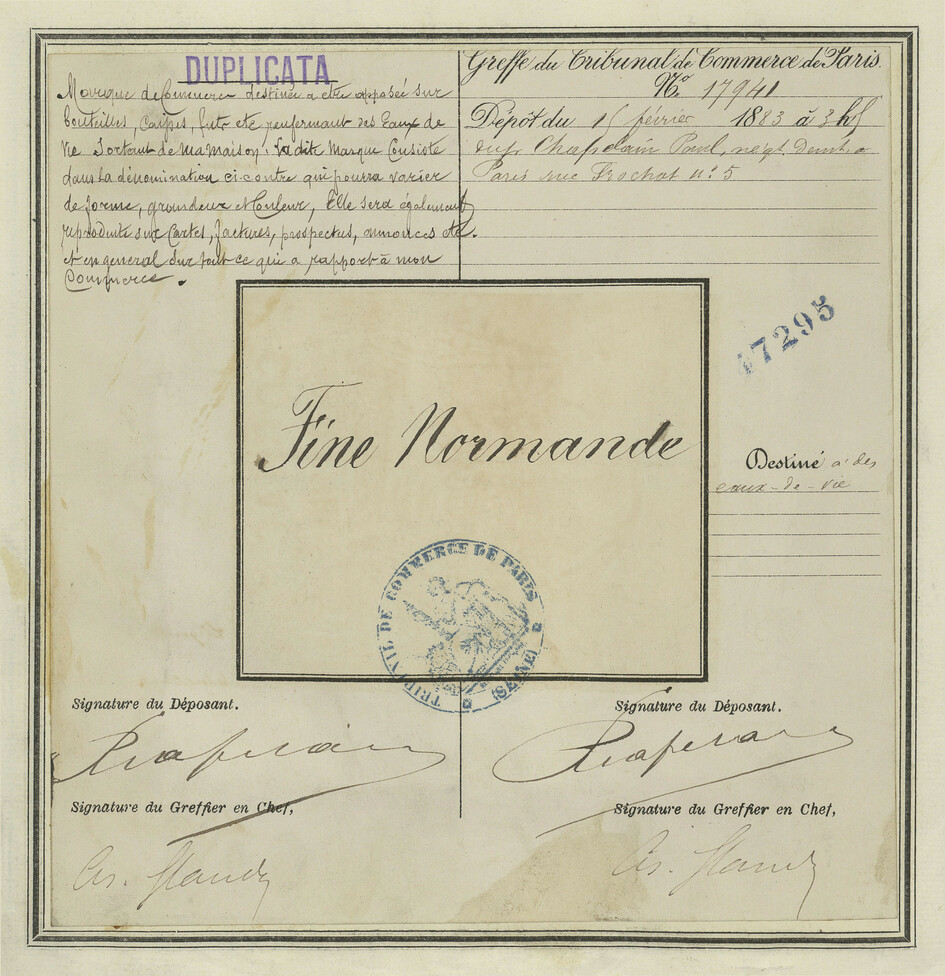 DUPLICATA
Marque de Commerce destinée a etre apposée sur
bouteilles, Caisses, futs etc renfermant des Eaux de
Vie Sortant de ma maison; la dite Marque Consiste
dans la dénomination ci-contre qui pourra varier
de forme, grandeur et Couleur, Elle sera également
reproduite sur Cartes, factures, prospectus, annonces etc.
et en general sur tout ce qui a rapport à mon
Commerce.
Greffe du Tribunal de Commerce de Paris.
No. 17941
Dépôt du 15 février 1883 à 3 h
Chapelain Paul, négt. Demt a
Paris rue Frochot n°. 5
47295
Fine Normande
Destiné a des
eaux-de-vie
TRIBUNAL DE COMMERCE DE PARIS
(SEINE)
Signature du Déposant.
Signature du Déposant.
Signature du Greffier en Chef,
Signature du Greffier en Chef,